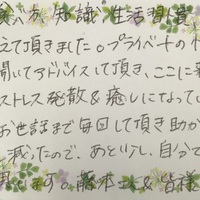 食べ方、知識、生活習慣、
えて頂きました。プライベートの
聞いてアドバイスして頂き、ここに
ストレス発散&癒しになって
お世話まで毎回して頂き助か
減ったので、あと少し、自分で
ます。藤本さん&皆様